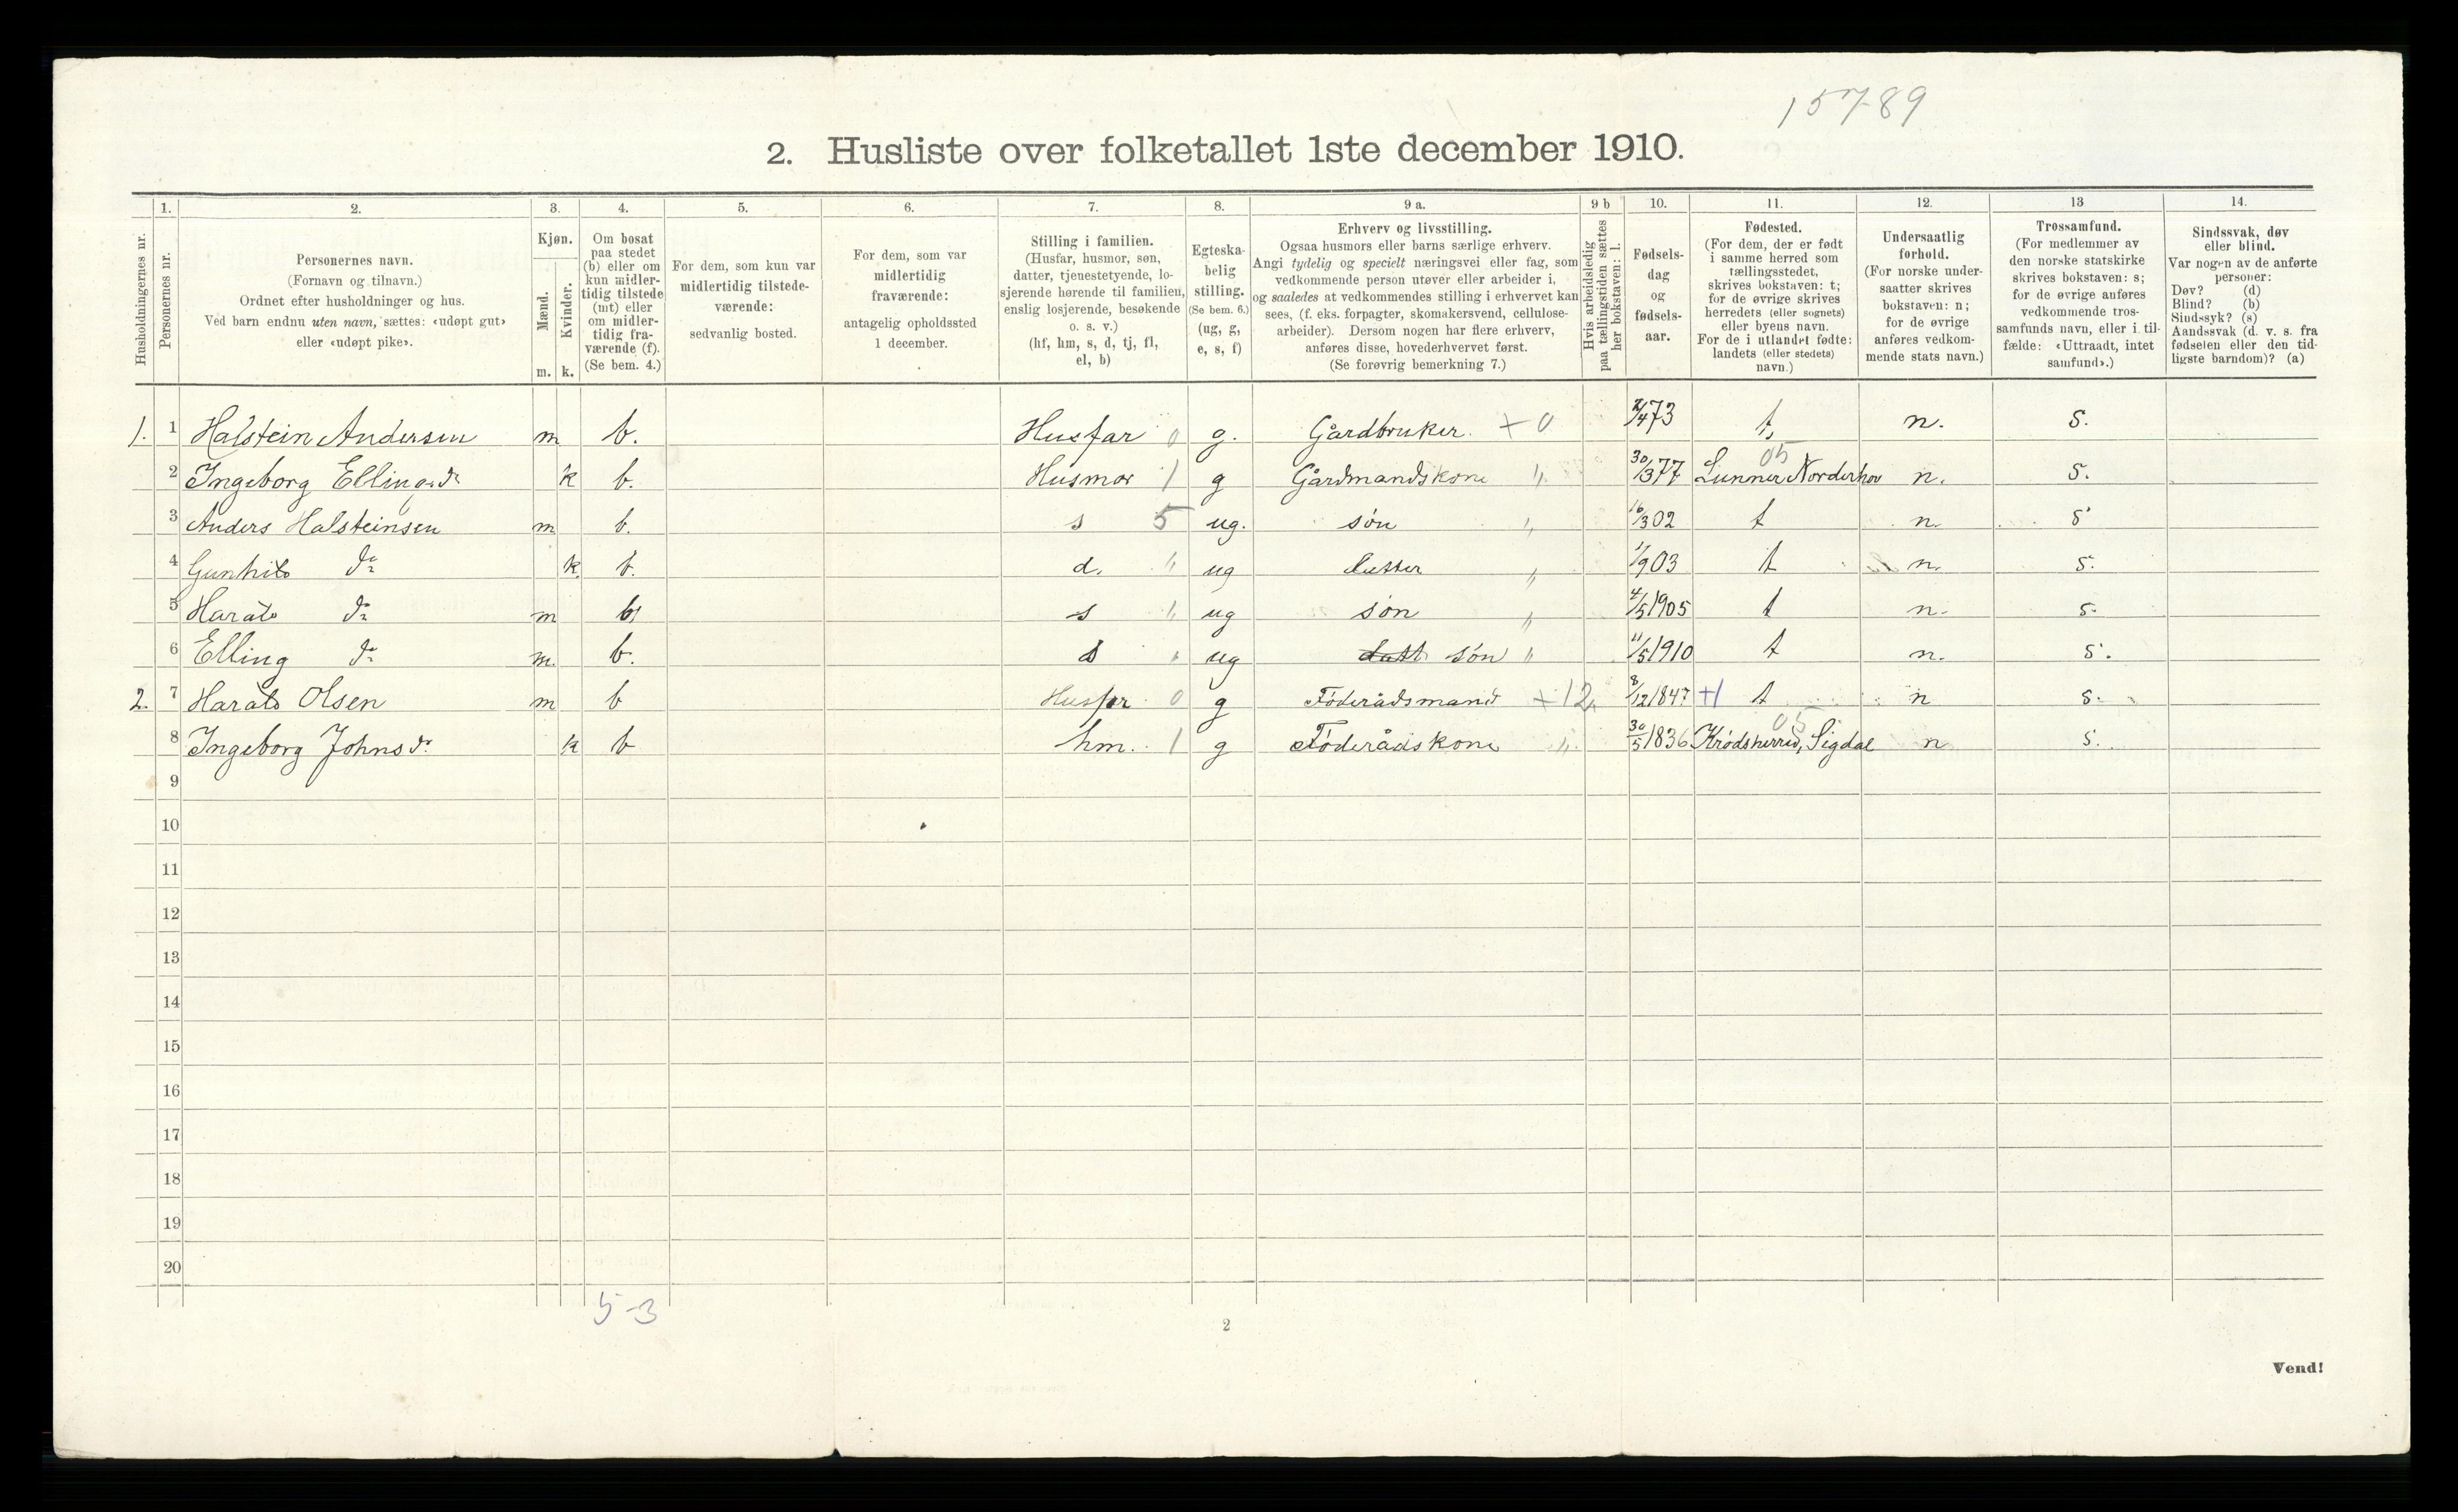 15789
2. Husliste over folketallet 1ste december 1910.
Husholdningernes nr.
1.
Personernes nr.
2.
Personernes navn.
(Fornavn og tilnavn.)
Ordnet efter husholdninger og hus.
Ved barn endnu uten navn, sættes: «udøpt gut»
eller «udøpt pike».
3.
Kjøn.
Mænd.
Kvinder.
m. k.
4.
Om bosat
paa stedet
(b) eller om
kun midler-
tidig tilstede
(mt) eller
om midler-
tidig fra-
værende (f).
(Se bem. 4.)
5.
For dem, som kun var
midlertidig tilstede-
værende:
sedvanlig bosted.
6.
For dem, som var
midlertidig
fraværende:
antagelig opholdssted
1 december.
7.
Stilling i familien.
(Husfar, husmor, søn,
datter, tjenestetyende, lo-
sjerende hørende til familien,
enslig losjerende, besøkende
o. s. v.)
(hf, hm, s, d, tj, fl,
el, b)
8.
Egteska-
belig
stilling.
(Se bem. 6.)
(ug, g,
e, s, f)
9 a.
Erhverv og livsstilling.
Ogsaa husmors eller barns særlige erhverv.
Angi tydelig og specielt næringsvei eller fag, som
vedkommende person utøver eller arbeider i,
og saaledes at vedkommendes stilling i erhvervet kan
sees, (f. eks. forpagter, skomakersvend, cellulose-
arbeider). Dersom nogen har flere erhverv,
anføres disse, hovederhvervet først.
(Se forøvrig bemerkning 7.)
9 b
Hvis arbeidsledig
paa tællingstiden sættes
her bokstaven: l.
10.
Fødsels-
dag
og
fødsels-
aar.
11.
Fødested.
(For dem, der er født
i samme herred som
tællingsstedet,
skrives bokstaven: t;
for de øvrige skrives
herredets (eller sognets)
eller byens navn.
For de i utlandet fødte:
landets (eller stedets)
navn.)
12.
Undersaatlig
forhold.
(For norske under-
saatter skrives
bokstaven: n;
for de øvrige
anføres vedkom-
mende stats navn.)
13
Trossamfund.
(For medlemmer av
den norske statskirke
skrives bokstaven: s;
for de øvrige anføres
vedkommende tros-
samfunds navn, eller i til-
fælde: «Uttraadt, intet
samfund».)
14.
Sindssvak, døv
eller blind.
Var nogen av de anførte
personer:
Døv? (d)
Blind? (b)
Sindssyk? (s)
Aandssvak (d. v. s. fra
fødselen eller den tid-
ligste barndom)? (a)
1. 1 Halstein Andersen m b. Husfar 0 g. Gårdbruker. + 0 2/4 73 t, n. s.
2 Ingeborg Ellingsdr k b. Husmor 1 g Gårdmandskone " 30/3 77 05 Lunner Norderhov n. s.
3 Anders Halsteinsen m b. s 5 ug. søn " 16/3 02 t n. s
4 Gunhild do k. b. d. " ug datter " 1/9 03 t n. s.
5 Harald do m b s " ug søn " 4/5 1905 t n. s.
6 Elling do m. b. s " ug datt. søn " 11/5 1910 t n. s.
2. 7 Harald Olsen m b Husfar 0 g Føderådsmand + 12 8/12 1847 +1 t n s.
8 Ingeborg Johnsdr. k b hm. 1 g Føderådskone " 30/5 1836 05 Krødsherred, Sigdal n s.
9
10
11
12
13
14
15
16
17
18
19
20
5-3
2
Vend!